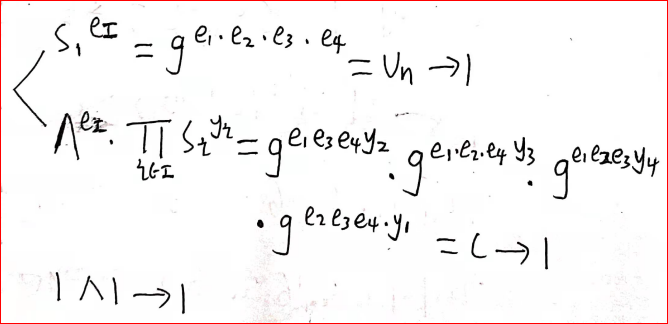 S₁^{e_I} = g^{e₁·e₂·e₃·e₄} = Uₙ → 1
Λ^{e_I} · ∏_{i∈I} S_i^{y_i} = g^{e₁e₃e₄y₂} · g^{e₁·e₂·e₄y₃} · g^{e₁e₂e₃y₄}
· g^{e₂e₃e₄·y₁} = C → 1
1 ∧ 1 → 1